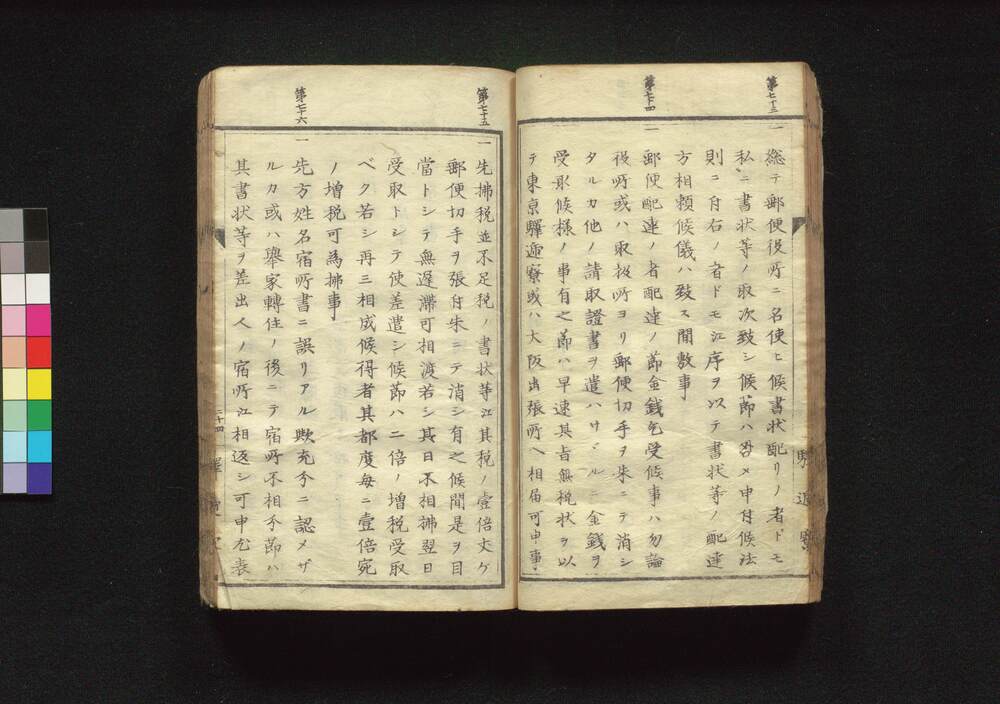 第七十三
一 総テ郵便役所ニ名使ヒ候書状配リノ者ドモ
私ニ書状等ノ取次致シ候節ハ咎メ申付候法
則ニ付右ノ者ドモ江序ヲ以テ書状等ノ配達
方相頼候儀ハ致ス間敷事
第七十四
一 郵便配達ノ者配達ノ節金銭乞受候事ハ勿論
役所或ハ取扱所ヨリ郵便切手ヲ朱ニテ消シ
タルカ他ノ請取證書ヲ遣ハサズルニ金銭ヲ
受取候様ノ事有之節ハ早速其旨無税状ヲ以
テ東京驛逓寮或ハ大阪出張所ヘ相届可申事
驛逓寮
第七十五
一 先拂税並不足税ノ書状等江其税ノ壹倍丈ケ
郵便切手ヲ張付朱ニテ消シ有之候間是ヲ目
當トシテ無遅滞可相渡若シ其日不相拂翌日
受取トシテ使差遣シ候節ハ二倍ノ増税受取
ベク若シ再三相成候得者其都度毎ニ壹倍宛
ノ増税可為拂事
第七十六
一 先方姓名宿所書ニ誤リアル歟充分ニ認メザ
ルカ或ハ擧家轉住ノ後ニテ宿所不相分節ハ
其書状等ヲ差出人ノ宿所江相返シ可申尤表
二十四